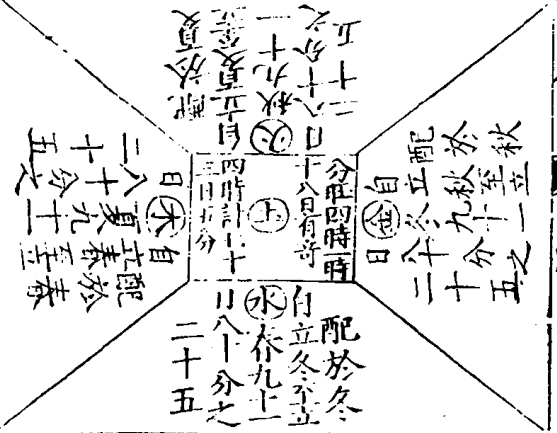 配於夏
自立夏至立
火
秋九十一
日八十分之
二十五
配於秋
自立秋至立
金
冬九十一
日八十分之
二十五
分旺四時一時
十八日有奇
土
四時計七十
三日五分
配於春
自立春至立
木
夏九十一
日八十分之
二十五
配於冬
自立冬至立
水
春九十一
日八十分之
二十五